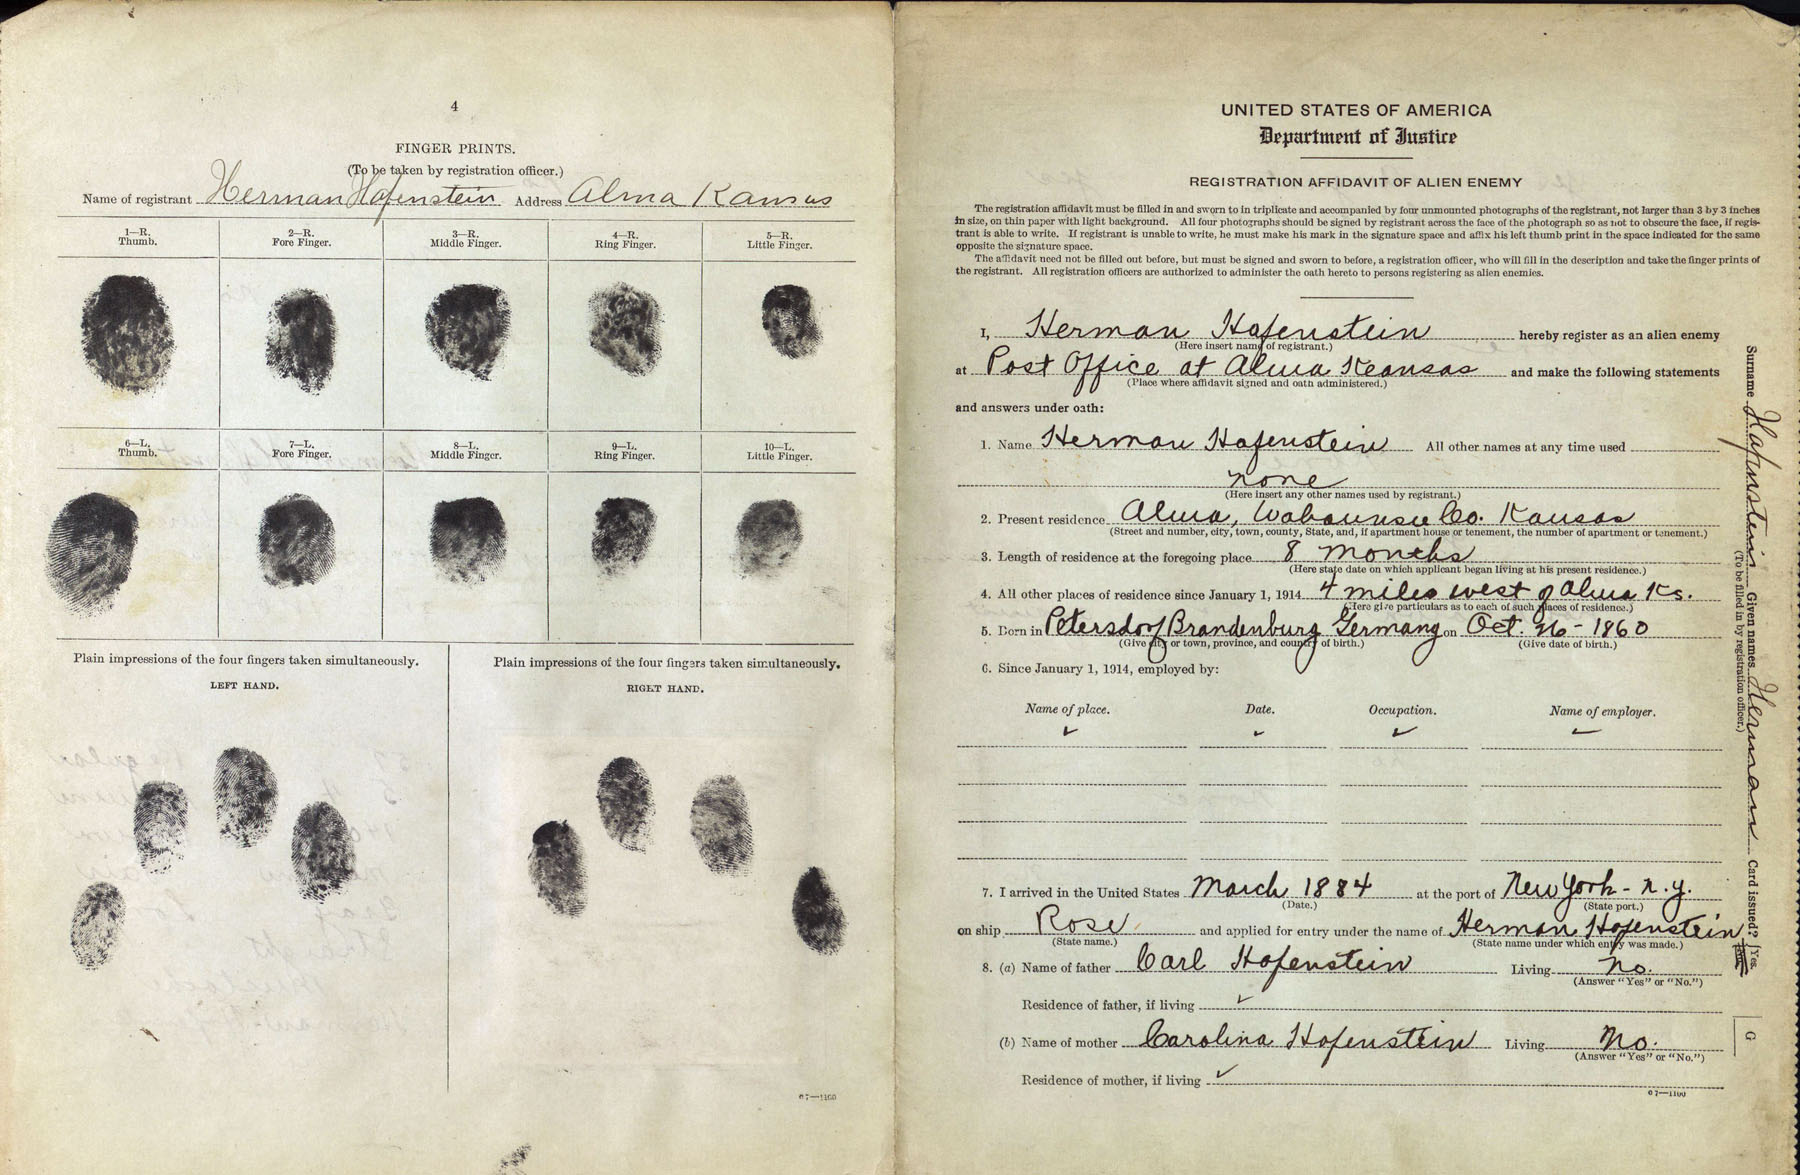 4
FINGER PRINTS.
(To be taken by registration officer.)
Name of registrant Herman Hafenstein Address Alma Kansas
1—R. Thumb.
2—R. Fore Finger.
3—R. Middle Finger.
4—R. Ring Finger.
5—R. Little Finger.
6—L. Thumb.
7—L. Fore Finger.
8—L. Middle Finger.
9—L. Ring Finger.
10—L. Little Finger.
Plain impressions of the four fingers taken simultaneously.
LEFT HAND.
Plain impressions of the four fingers taken simultaneously.
RIGHT HAND.
67—1100
UNITED STATES OF AMERICA
Department of Justice
REGISTRATION AFFIDAVIT OF ALIEN ENEMY
The registration affidavit must be filled in and sworn to in triplicate and accompanied by four unmounted photographs of the registrant, not larger than 3 by 3 inches
in size, on thin paper with light background. All four photographs should be signed by registrant across the face of the photograph so as not to obscure the face, if regis-
trant is able to write. If registrant is unable to write, he must make his mark in the signature space and affix his left thumb print in the space indicated for the same
opposite the signature space.
The affidavit need not be filled out before, but must be signed and sworn to before, a registration officer, who will fill in the description and take the finger prints of
the registrant. All registration officers are authorized to administer the oath hereto to persons registering as alien enemies.
I, Herman Hafenstein hereby register as an alien enemy
(Here insert name of registrant.)
at Post Office at Alma Kansas and make the following statements
(Place where affidavit signed and oath administered.)
and answers under oath:
1. Name Herman Hafenstein All other names at any time used
none
(Here insert any other names used by registrant.)
2. Present residence Alma, Wabaunsee Co. Kansas
(Street and number, city, town, county, State, and, if apartment house or tenement, the number of apartment or tenement.)
3. Length of residence at the foregoing place 8 months
(Here state date on which applicant began living at his present residence.)
4. All other places of residence since January 1, 1914 4 miles west of Alma Ks.
(Here give particulars as to each of such places of residence.)
5. Born in Petersdorf Brandenburg Germany on Oct. 26 - 1860
(Give city or town, province, and country of birth.) (Give date of birth.)
6. Since January 1, 1914, employed by:
Name of place. Date. Occupation. Name of employer.
7. I arrived in the United States March 1884 at the port of New York - N.Y.
(Date.) (State port.)
on ship Rose and applied for entry under the name of Herman Hafenstein
(State name.) (State name under which entry was made.)
8. (a) Name of father Carl Hafenstein Living No.
(Answer "Yes" or "No.")
Residence of father, if living
(b) Name of mother Carolina Hafenstein Living No.
(Answer "Yes" or "No.")
Residence of mother, if living
67—1100
Surname Hafenstein Given names Herman Card issued? Yes.
(To be filled in by registration officer.)
G